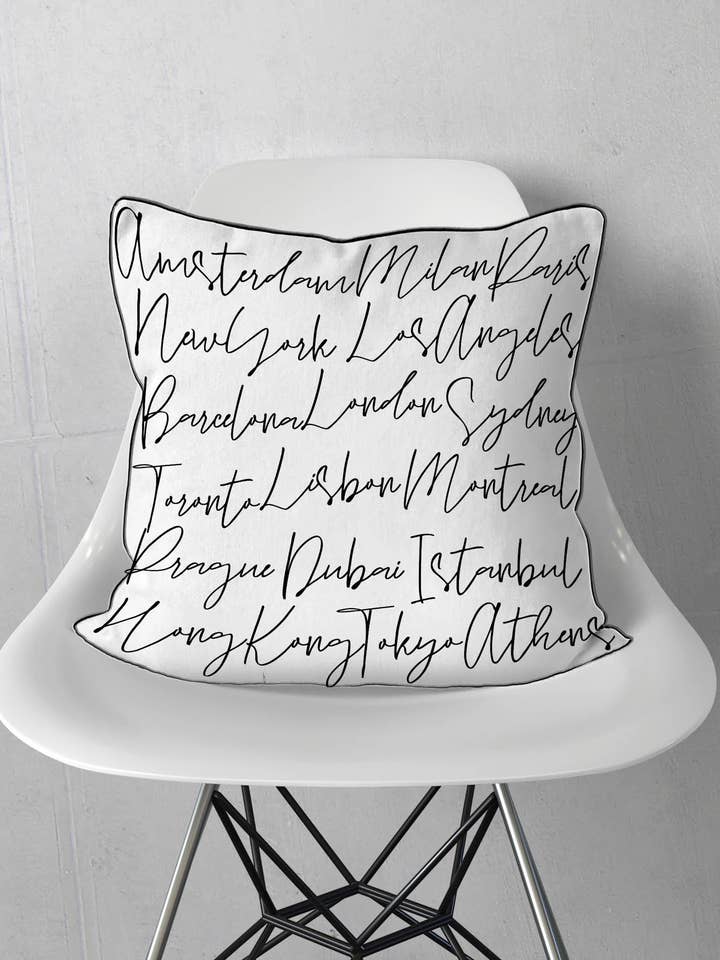 Amsterdam Milan Paris
New York Los Angeles
Barcelona London Sydney
Toronto Lisbon Montreal
Prague Dubai Istanbul
Hong Kong Tokyo Athens